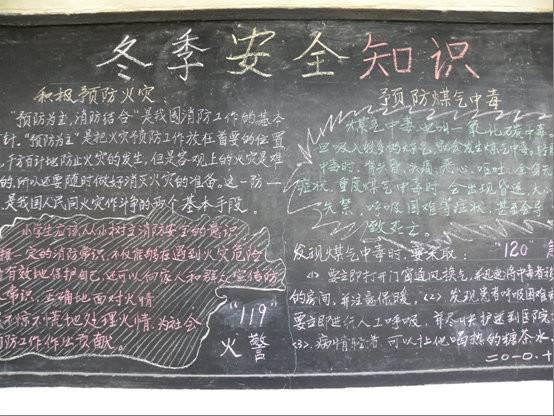 冬季安全知识
积极预防火灾：
"预防为主，消防结合"是我国消防工作的基本
针。"预防为主"是把火灾预防工作放在首要的位置
千方百计地防止火灾的发生，但是客观上的火灾是难
的，所以还要随时做好消灭火灾的准备。这一防一
是我国人民同火灾作斗争的两个基本手段。
小学生应该从小树立消防安全的意识
握一定的消防常识，不仅能够在遇到火灾危险
有效地保护自己，还可以向家人和群众宣传防
常识，正确地面对火情
不惊不慌地处理火情，为社会
消防工作作出贡献。
"119"
火警
预防煤气中毒
煤气中毒也叫一氧化碳中毒
吸入较多的煤气就会发生煤气中毒。
中毒时，有头昏、头痛、恶心、呕吐、全身无
症状，重度煤气中毒时，会出现昏迷、大小
失禁、呼吸困难等症状，甚至会导
致死亡。
发现煤气中毒时，要采取： "120"
(1) 要立即打开门窗通风换气，迅速将中毒者
的房间，并注意保暖，(2) 发现患者呼吸困难
要立即进行人工呼吸，并尽快护送到医院
(3) 病情轻者，可以让他喝热的糖茶水，
二〇一〇.十